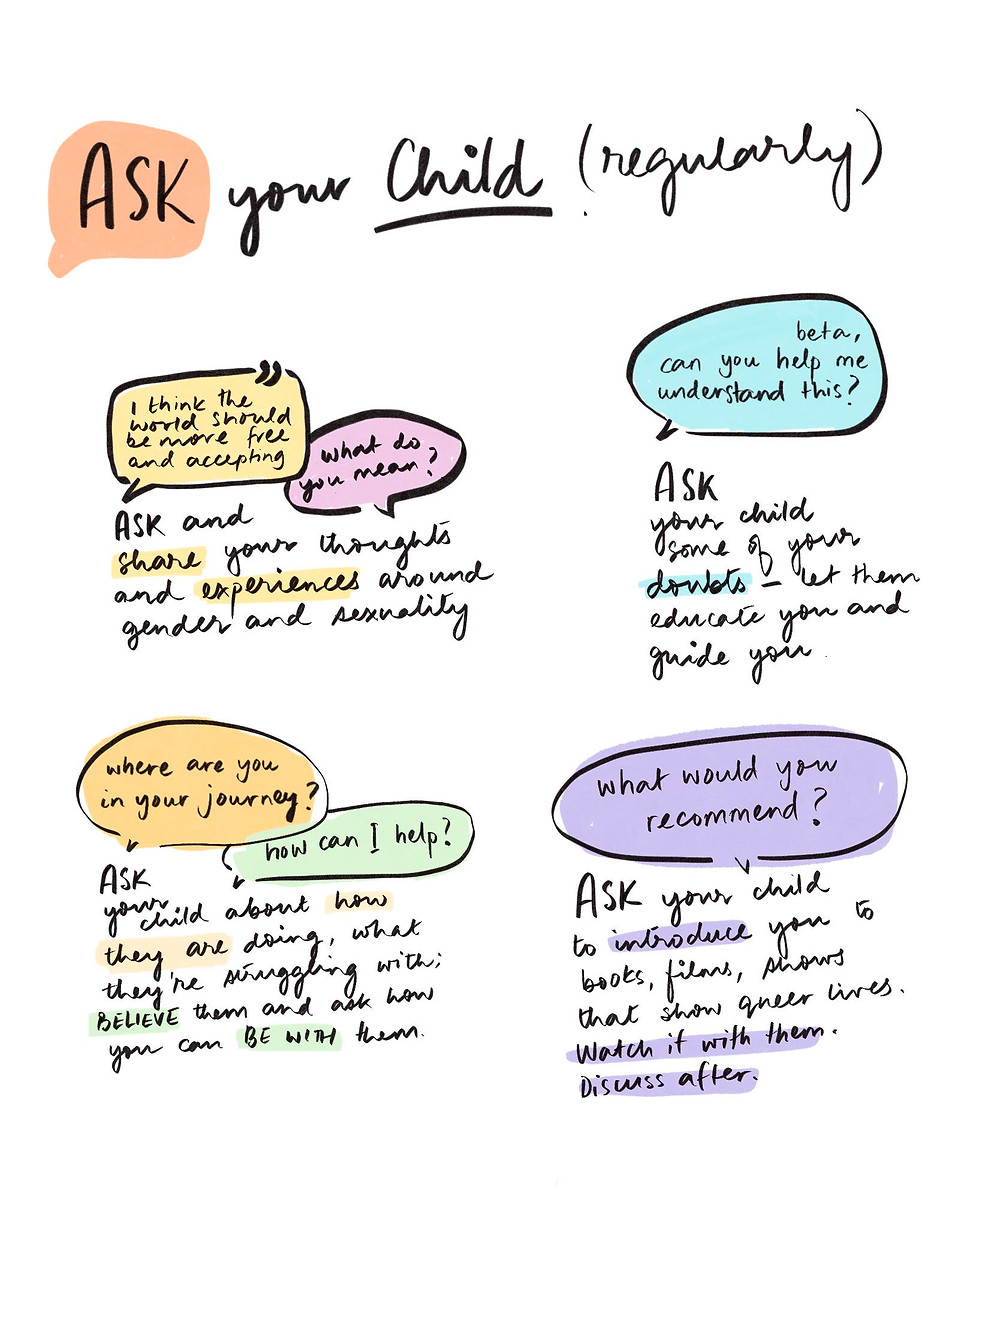 ASK your Child (regularly)
I think the
world should
be more free
and accepting
what do
you mean?
ASK and
share your thoughts
and experiences around
gender and sexuality
beta,
can you help me
understand this?
ASK
your child
some of your
doubts – let them
educate you and
guide you.
where are you
in your journey?
how can I help?
ASK
your child about how
they are doing, what
they're struggling with;
BELIEVE them and ask how
you can BE WITH them.
what would you
recommend?
ASK your child
to introduce you to
books, films, shows
that show queer lives.
Watch it with them.
Discuss after.